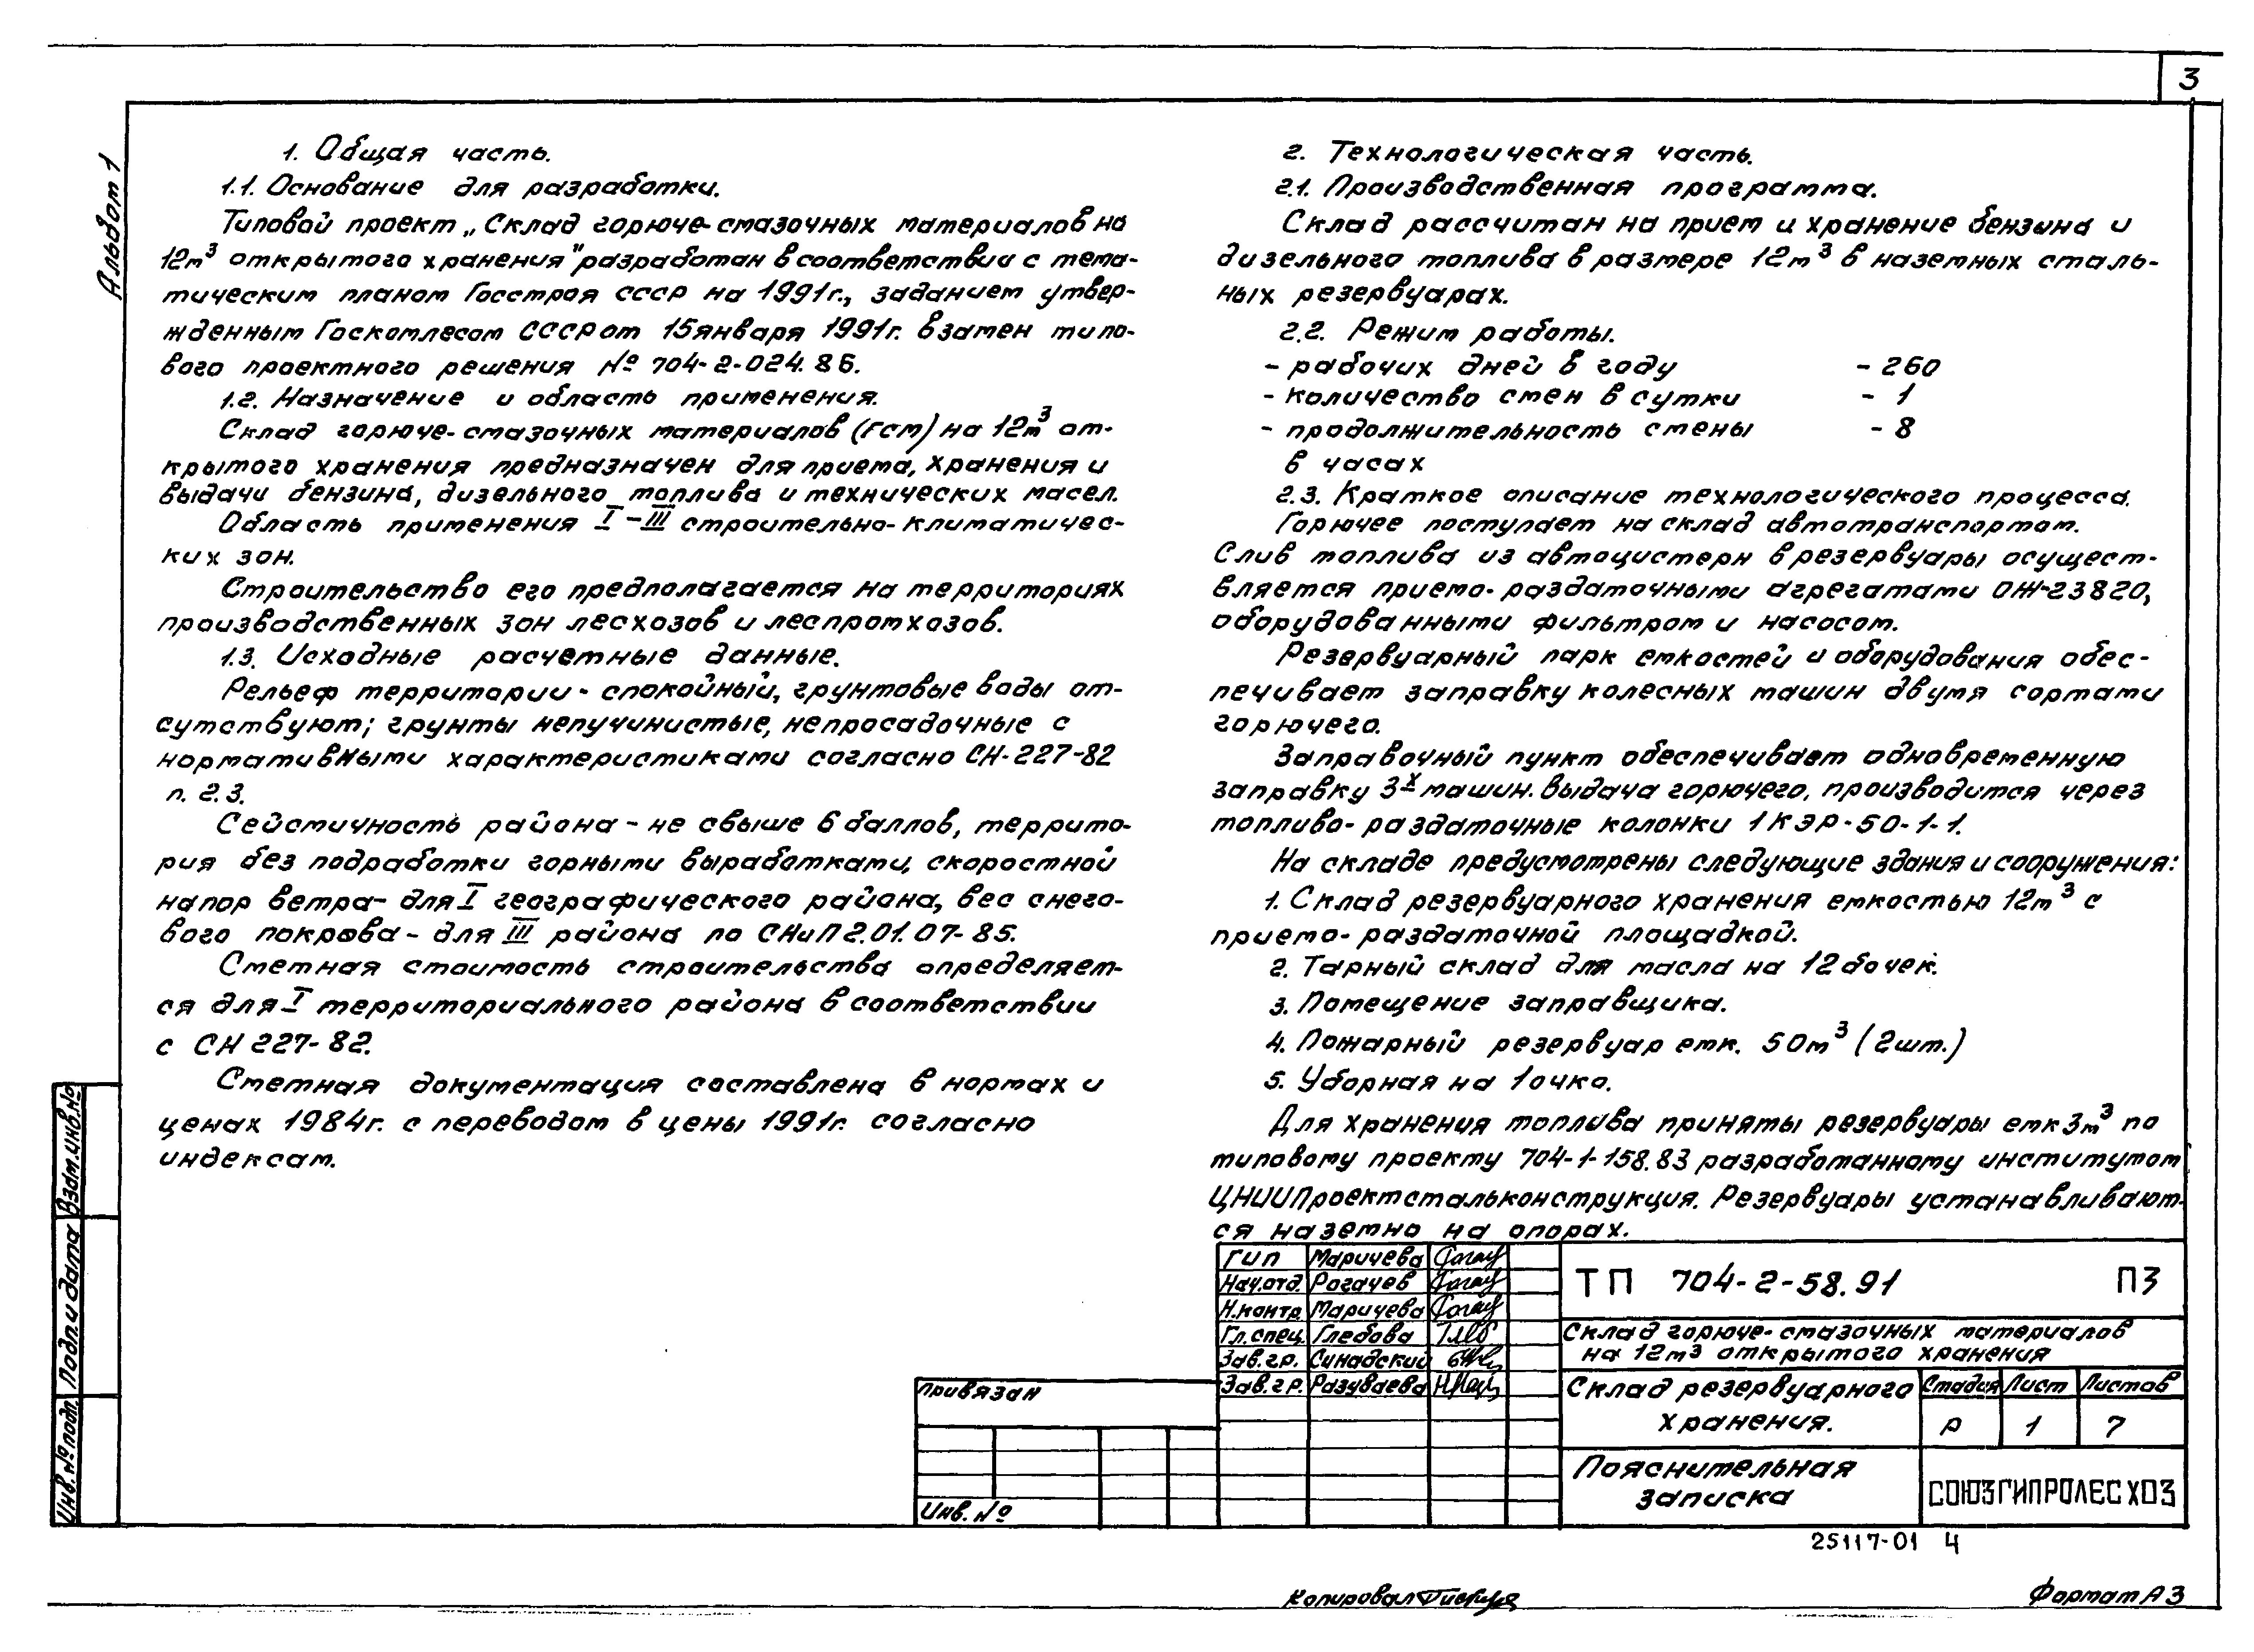 3
Альбом 1
1. Общая часть.
1.1. Основание для разработки.
Типовой проект „Склад горюче-смазочных материалов на
12м³ открытого хранения" разработан в соответствии с тема-
тическим планом Госстроя СССР на 1991г., заданием утвер-
жденным Госкомлесом СССР от 15 января 1991г. взамен типо-
вого проектного решения № 704-2-024.86.
1.2. Назначение и область применения.
Склад горюче-смазочных материалов (ГСМ) на 12м³ от-
крытого хранения предназначен для приема, хранения и
выдачи бензина, дизельного топлива и технических масел.
Область применения I-III строительно-климатичес-
ких зон.
Строительство его предполагается на территориях
производственных зон лесхозов и леспромхозов.
1.3. Исходные расчетные данные.
Рельеф территории - спокойный, грунтовые воды от-
сутствуют; грунты непучинистые, непросадочные с
нормативными характеристиками согласно СН-227-82
п. 2.3.
Сейсмичность района - не свыше 6 баллов, террито-
рия без подработки горными выработками, скоростной
напор ветра - для I географического района, вес снего-
вого покрова - для III района по СНиП 2.01.07-85.
Сметная стоимость строительства определяет-
ся для I территориального района в соответствии
с СН 227-82.
Сметная документация составлена в нормах и
ценах 1984г. с переводом в цены 1991г. согласно
индексам.
2. Технологическая часть.
2.1. Производственная программа.
Склад рассчитан на прием и хранение бензина и
дизельного топлива в размере 12м³ в наземных сталь-
ных резервуарах.
2.2. Режим работы.
- рабочих дней в году - 260
- количество смен в сутки - 1
- продолжительность смены - 8
в часах
2.3. Краткое описание технологического процесса.
Горючее поступает на склад автотранспортом.
Слив топлива из автоцистерн в резервуары осущест-
вляется приемо-раздаточными агрегатами ОЖ-23820,
оборудованными фильтром и насосом.
Резервуарный парк емкостей и оборудования обес-
печивает заправку колесных машин двумя сортами
горючего.
Заправочный пункт обеспечивает одновременную
заправку 3х машин. Выдача горючего, производится через
топливо-раздаточные колонки 1КЭР-50-1-1.
На складе предусмотрены следующие здания и сооружения:
1. Склад резервуарного хранения емкостью 12м³ с
приемо-раздаточной площадкой.
2. Тарный склад для масла на 12 бочек.
3. Помещение заправщика.
4. Пожарный резервуар емк. 50м³ (2шт.)
5. Уборная на 1 очко.
Для хранения топлива приняты резервуары емк 3м³ по
типовому проекту 704-1-158.83 разработанному институтом
ЦНИИПроектстальконструкция. Резервуары устанавливают-
ся наземно на опорах.
ГИП Маричева
Нач.отд. Рогачев
Н.контр. Маричева
Гл.спец. Глебова
Зав.гр. Синадский
Зав.гр. Разуваева
ТП 704-2-58.91 ПЗ
Склад горюче-смазочных материалов
на 12м³ открытого хранения
Склад резервуарного
хранения.
Стадия Лист Листов
Р 1 7
Пояснительная
записка
СОЮЗГИПРОЛЕСХОЗ
Привязан
Инв. №
Взам.инв.№
Подп. и дата
Инв.№ подл.
25117-01 4
Копировал
Формат А3